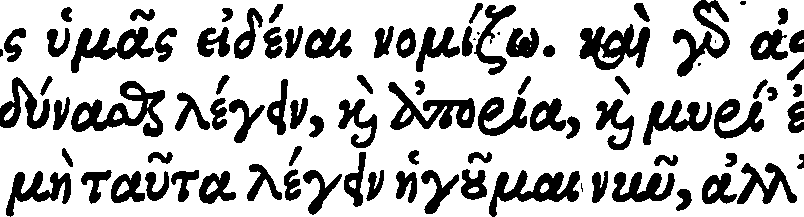 ς ὑμᾶς εἰδέναι νομίζω. καὶ γὰρ ἀ
δύνασθαι λέγειν, καὶ ἀπορία, καὶ μυρί' ἐ
μὴ ταῦτα λέγειν ἡγοῦμαι νικᾶν, ἀλλ'